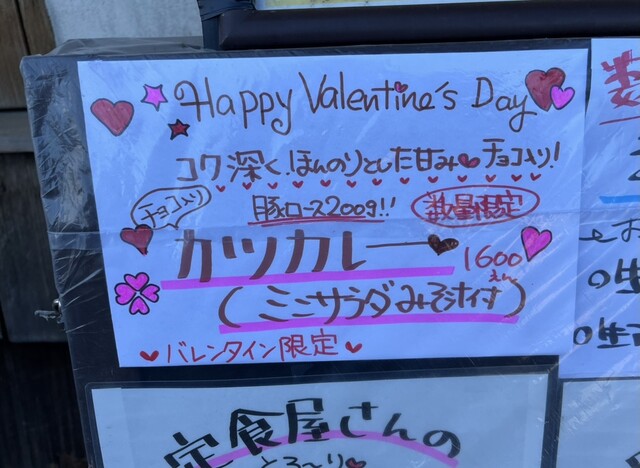 Happy Valentine's Day
コク深く！ほんのりとした甘み♥チョコ入り！
豚ロース200g!!
数量限定
チョコ入り
カツカレー
1600
えん
(ミニサラダみそ汁付)
バレンタイン限定
定食屋さんの
とろ〜り